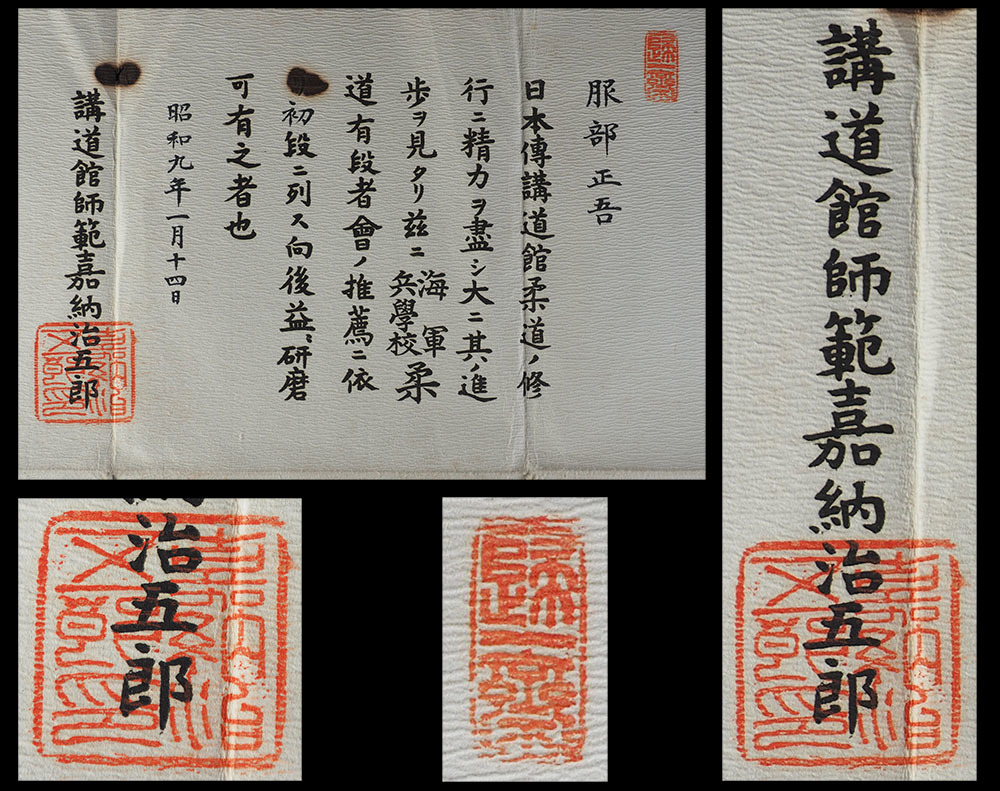 服部正吾
日本傳講道館柔道ノ修
行ニ精力ヲ盡シ大ニ其ノ進
歩ヲ見タリ茲ニ海軍兵學校柔
道有段者會ノ推薦ニ依
初段ニ列ス向後益〻研磨
可有之者也
昭和九年一月十四日
講道館師範嘉納治五郎
講道館師範嘉納治五郎
治五郎